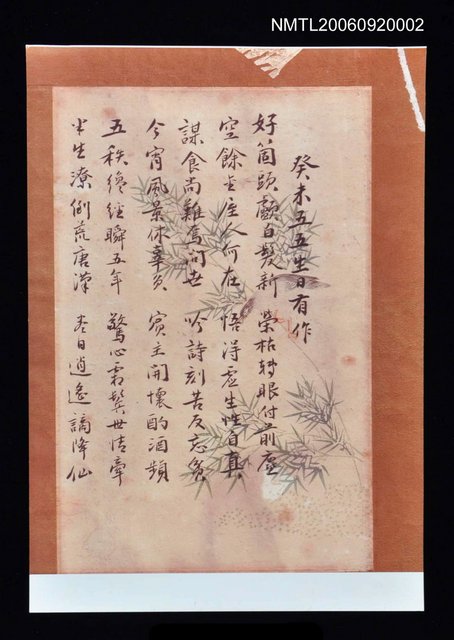 NMTL20060920002
癸未五五生日有作
好箇頭顱白髮新 榮枯轉眼付前塵
空餘 主人何在 悟得虛生性自真
謀食尚難焉問世 吟詩刻苦反忘貧
今宵風景休辜負 賓主開懷酌酒頻
五秩纔經瞬五年 驚心霜鬢世情牽
半生潦倒荒唐漢 日逍遙謫降仙